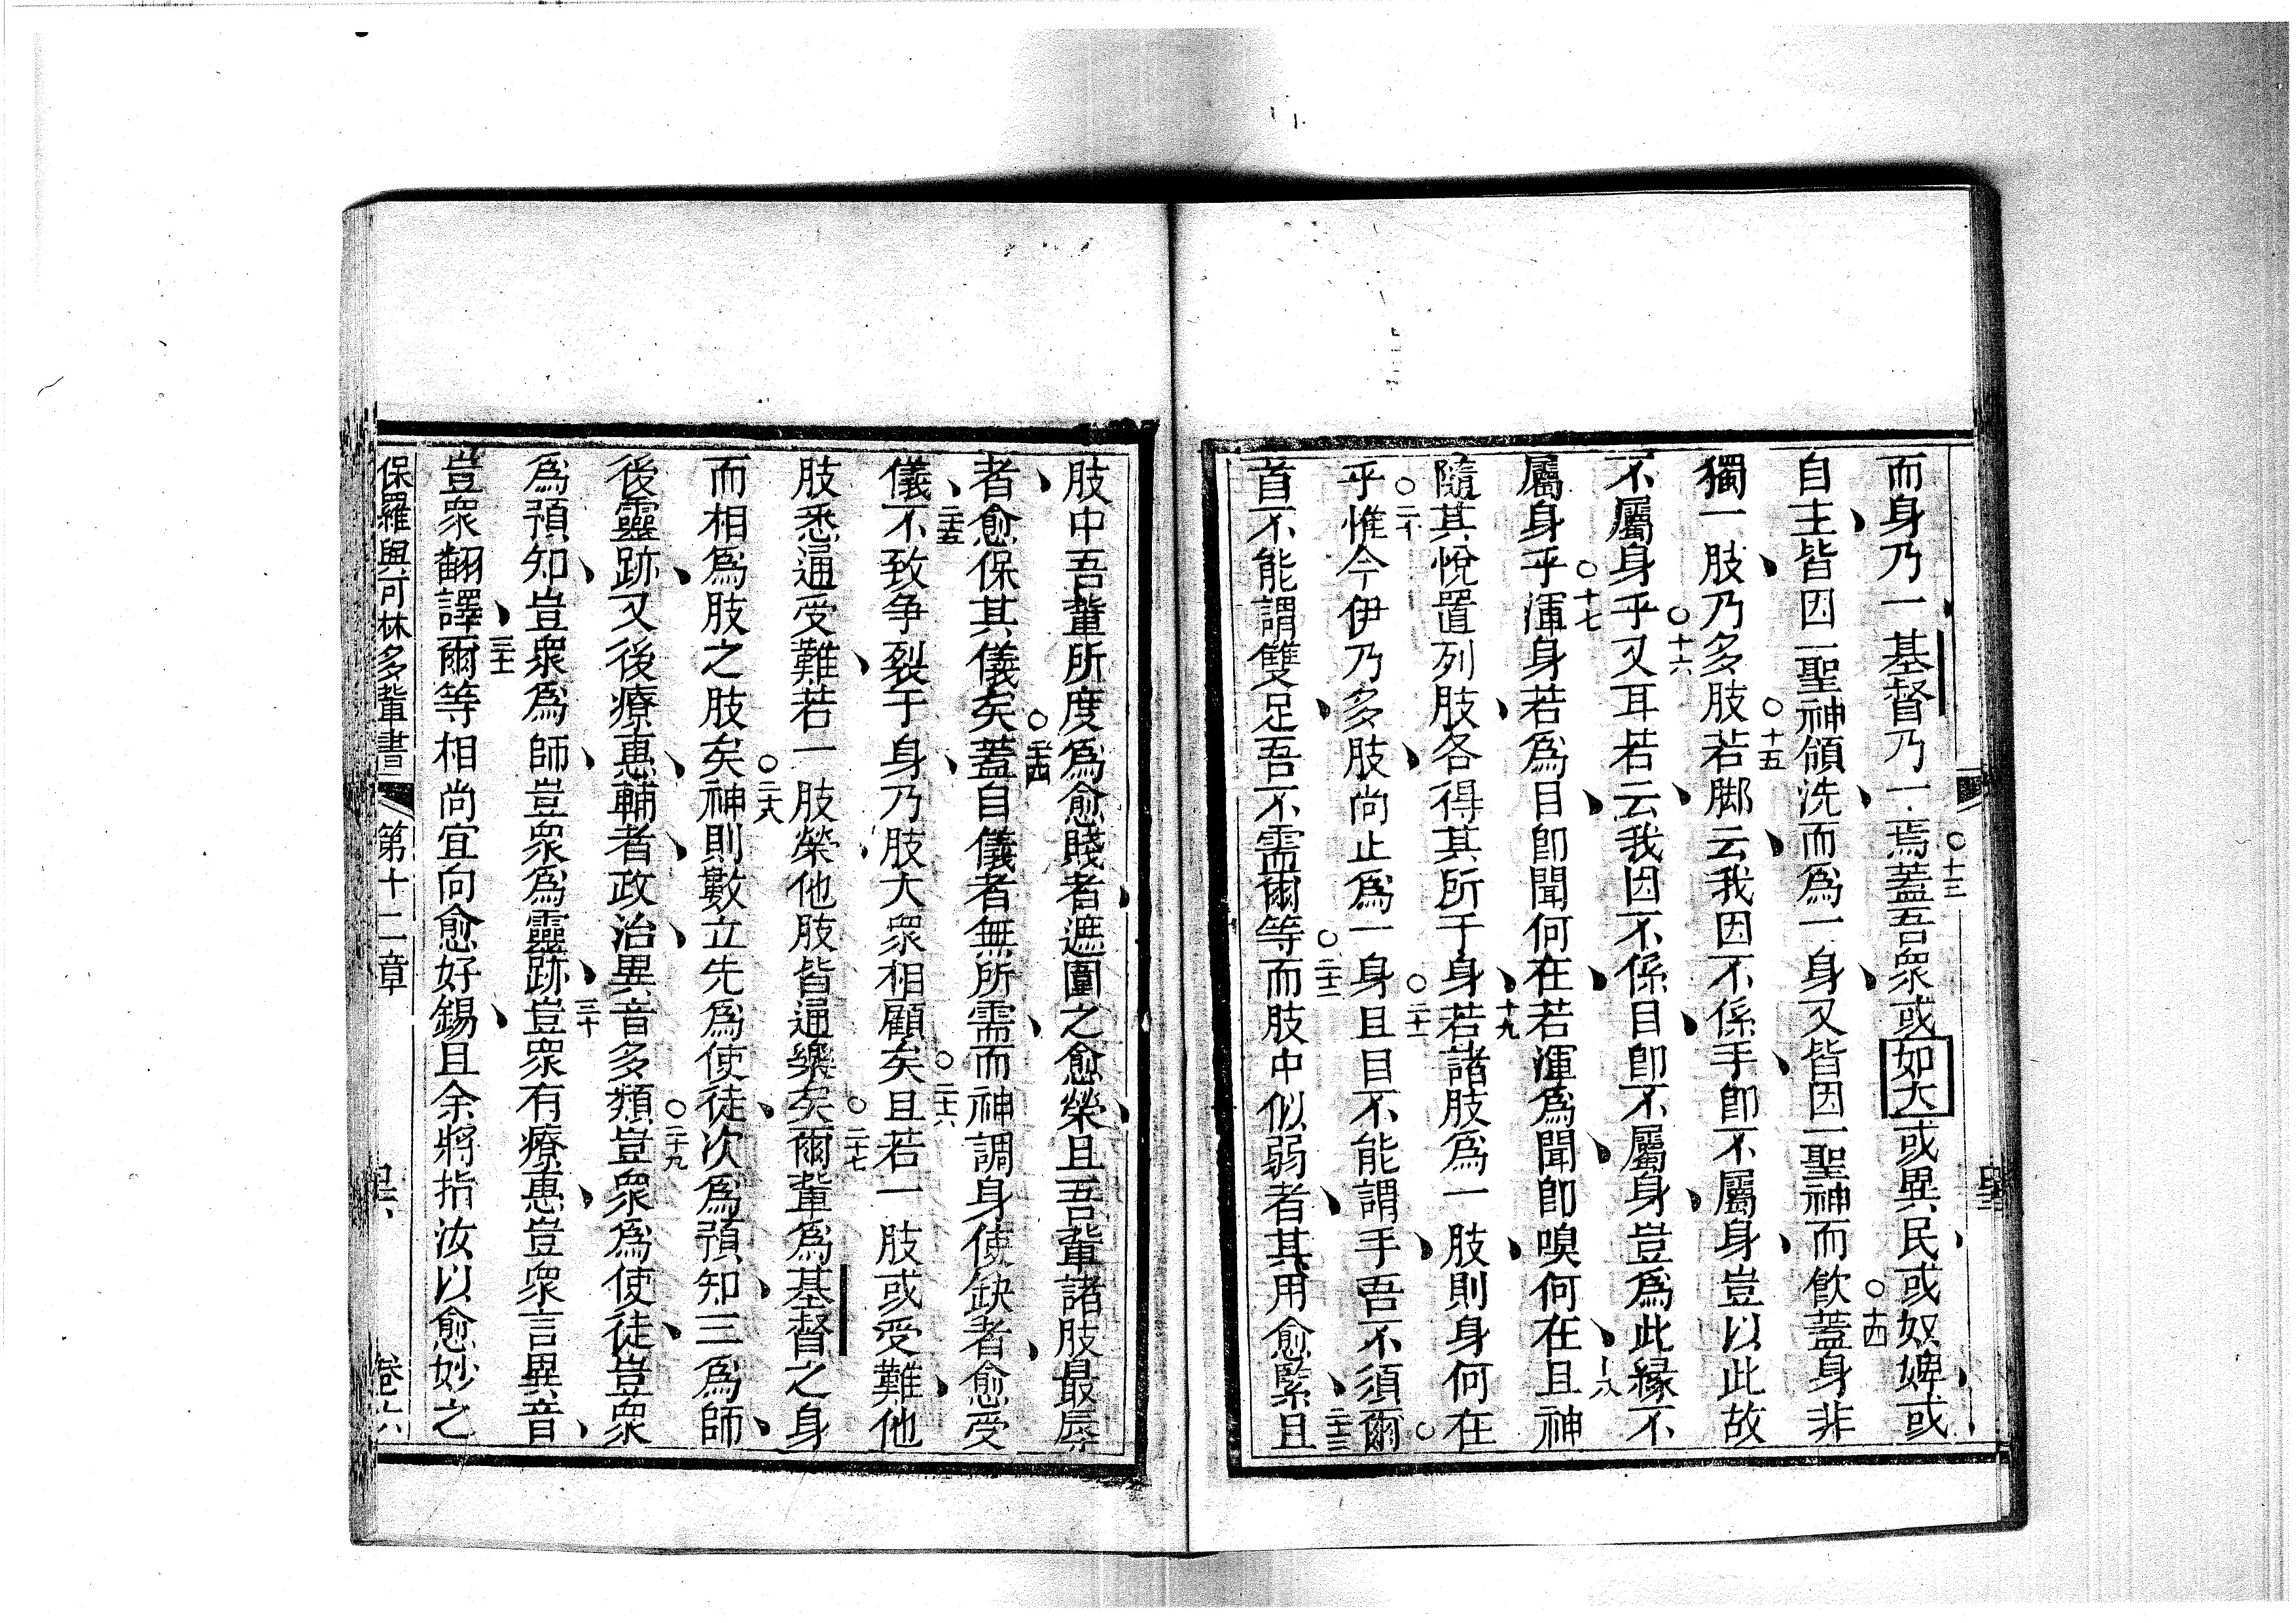 而身乃一基督乃一焉○十三蓋吾衆或如大或異民或奴婢或
自主皆因一聖神領洗而爲一身又皆因一聖神而飮○十四蓋身非
獨一肢乃多肢○十五若脚云我因不係手卽不屬身豈以此故
不屬身乎○十六又耳若云我因不係目卽不屬身豈爲此緣不
屬身乎○十七渾身若爲目卽聞何在若渾爲聞卽嗅何在十八且神
隨其悅置列肢各得其所于身十九若諸肢爲一肢則身何在
乎○二十惟今伊乃多肢尚止爲一身○二十一且目不能謂手吾不須爾○
首不能謂雙足吾不需爾等○二十二而肢中似弱者其用愈緊二十三且
肢中吾輩所度爲愈賤者遮圍之愈榮且吾輩諸肢最辱
者愈保其儀矣○二十四蓋自儀者無所需而神調身使缺者愈受
儀二十五不致争裂于身乃肢大衆相顧矣○二十六且若一肢或受難他
肢悉通受難若一肢榮他肢皆通樂矣○二十七爾輩爲基督之身
而相爲肢之肢矣○二十八神則數立先爲使徒次爲預知三爲師
後靈跡又後療惠輔者政治異音多類○二十九豈衆爲使徒豈衆
爲預知豈衆爲師豈衆爲靈跡三十豈衆有療惠豈衆言異音
豈衆翻譯三十一爾等相尚宜向愈好錫且余將指汝以愈妙之
保羅與可林多輩書 第十二章 卷六